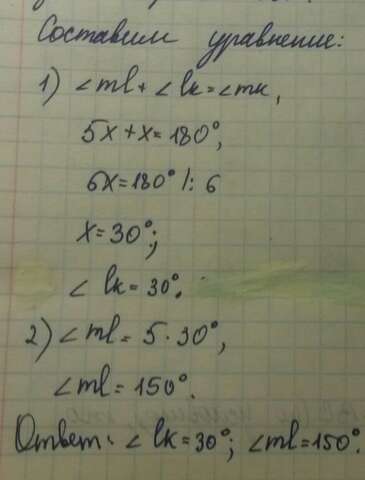 Составим уравнение:
1) ∠ml + ∠lk = ∠mk,
5x + x = 180°,
6x = 180° |: 6
x = 30°;
∠lk = 30°.
2) ∠ml = 5 · 30°,
∠ml = 150°.
Ответ: ∠lk = 30°; ∠ml = 150°.